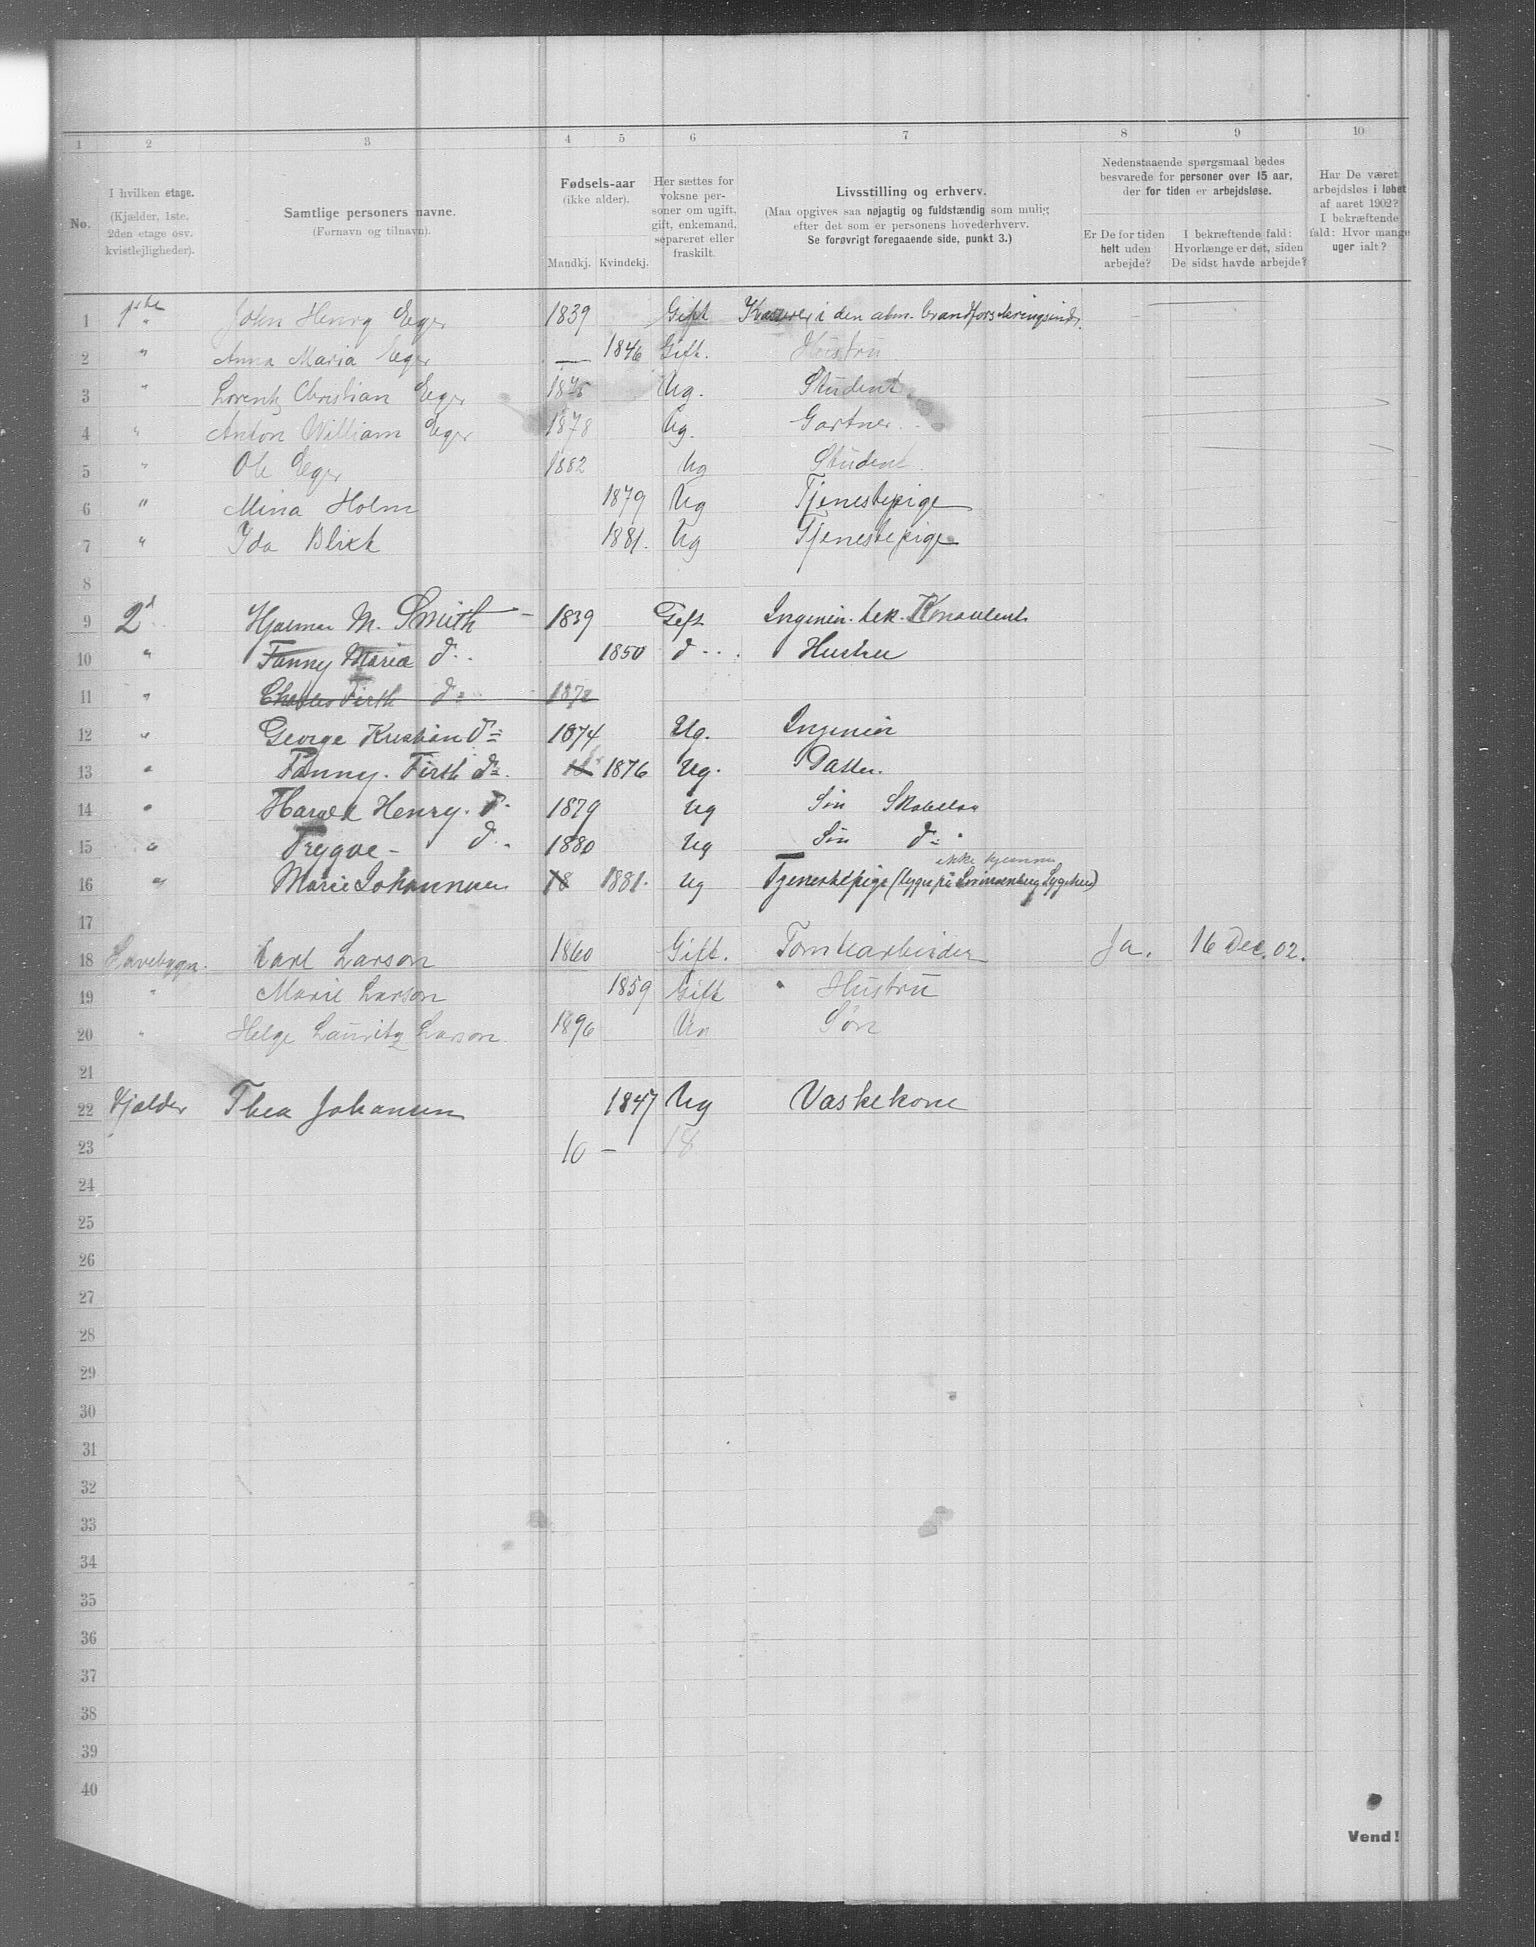 1 2 3 4 5 6 7 8 9 10
No.
I hvilken etage.
(Kjælder, 1ste.
2den etage osv.
kvistlejligheder).
Samtlige personers navne.
(Fornavn og tilnavn).
Fødsels-aar
(ikke alder).
Mandkj. Kvindekj.
Her sættes for
voksne per-
soner om ugift,
gift, enkemand,
separeret eller
fraskilt.
Livsstilling og erhverv.
(Maa opgives saa nøjagtig og fuldstændig som mulig
efter det som er personens hovederhverv.
Se forøvrigt foregaaende side, punkt 3.)
Nedenstaaende spørgsmaal bedes
besvarede for personer over 15 aar,
der for tiden er arbejdsløse.
Er De for tiden
helt uden
arbejde?
I bekræftende fald:
Hvorlænge er det, siden
De sidst havde arbejde?
Har De været
arbejdsløs i løbet
af aaret 1902?
I bekræftende
fald: Hvor mange
uger ialt?
1 1ste John Henry Eger 1839 Gift Kasserer i den alm. brandforsikringsindr.
2 " Anna Maria Eger — 1846 Gift. Hustru
3 " Lorentz Christian Eger 1875 Ug. Student
4 " Anton William Eger 1878 Ug. Gartner
5 " Ole Eger 1882 Ug Student.
6 " Mina Holm 1879 Ug Tjenestepige
7 " Ida Blixt 1881. Ug Tjenestepige
8
9 2d Hjalmar M. Smith 1839 Gift Ingeniør. tek. Konsulent
10 " Fanny Maria do 1850 do Hustru
11 " Charles Firth do 1872
12 " George Kristian do 1874 Ug. Ingeniør
13 " Fanny. Firth do. 18 1876 Ug. Datter.
14 " Harald Henry. do 1879 Ug Søn
15 " Trygve - do 1880 Ug Søn do
ikke hjemme
16 " Marie Johannesen 18 1881. Ug Tjenestepige (ligger på Sygehus)
17
18 Karl Larson 1860 Gift. Tomtearbeider Ja. 16 Dec. 02.
19 " Marie Larson 1859 Gift Hustru
20 " Helge Lauritz Larson 1896 Ug Søn
21
22 Kjælder Thea Johansen 1847 Ug Vaskekone
23 10 — 18
24
25
26
27
28
29
30
31
32
33
34
35
36
37
38
39
40
Vend!